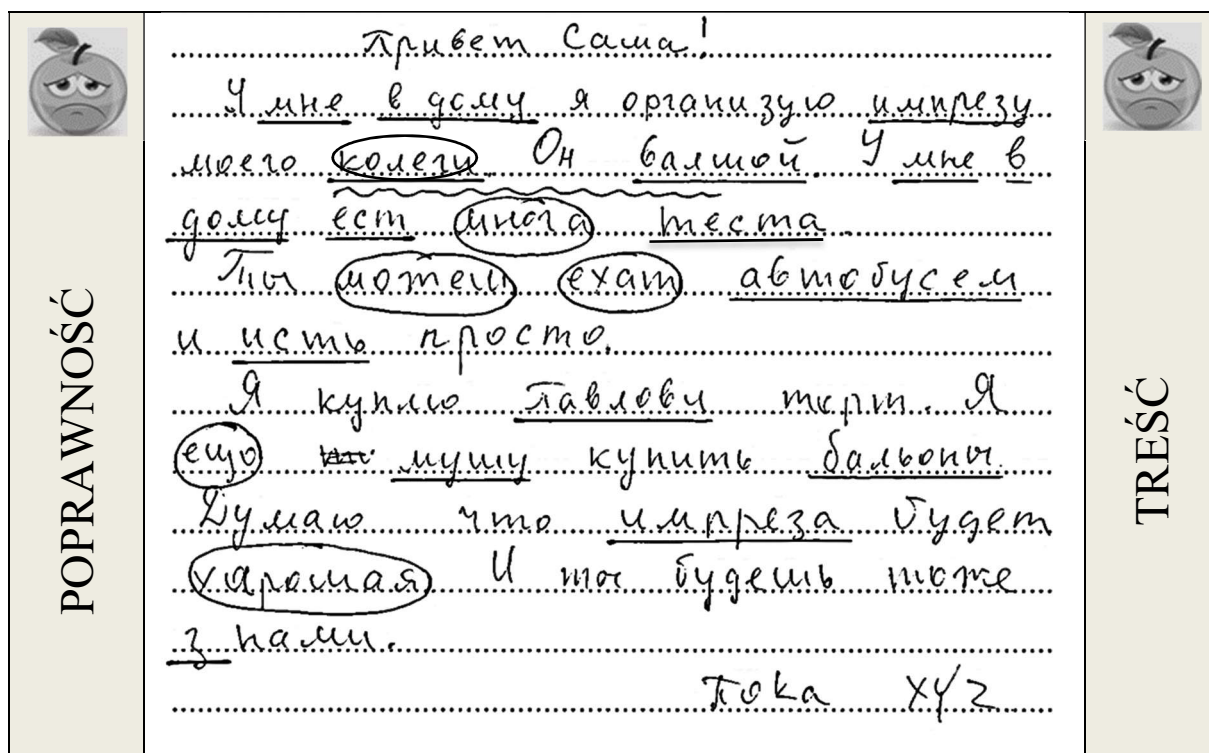 POPRAWNOŚĆ
Привет Саша!
У мне в дому я организую импрезу
моего колеги. Он балшой. У мне в
дому ест многа теста.
Ты можеш ехат автобусем
и исть просто.
Я куплю Павлови торт. Я
ещо мушу купить бальоны.
Думаю что импреза будет
харошая И ты будешь тоже
з нами.
Пока XYZ
TREŚĆ